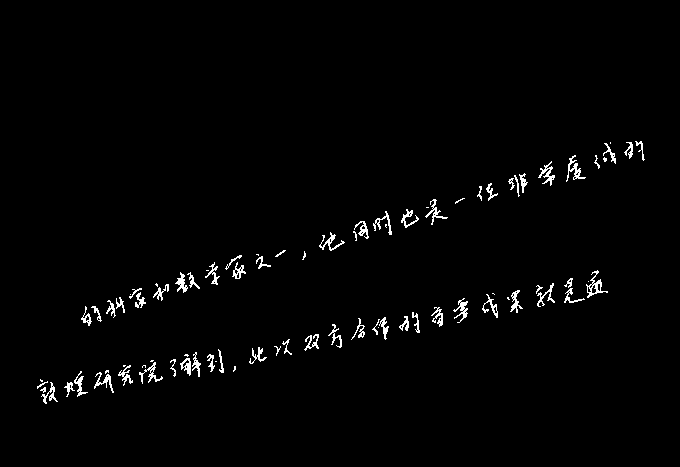 的科家和数学家之一，他同时也是一位非常虔诚的
敦煌研究院了解到，此次双方合作的首要成果就是通